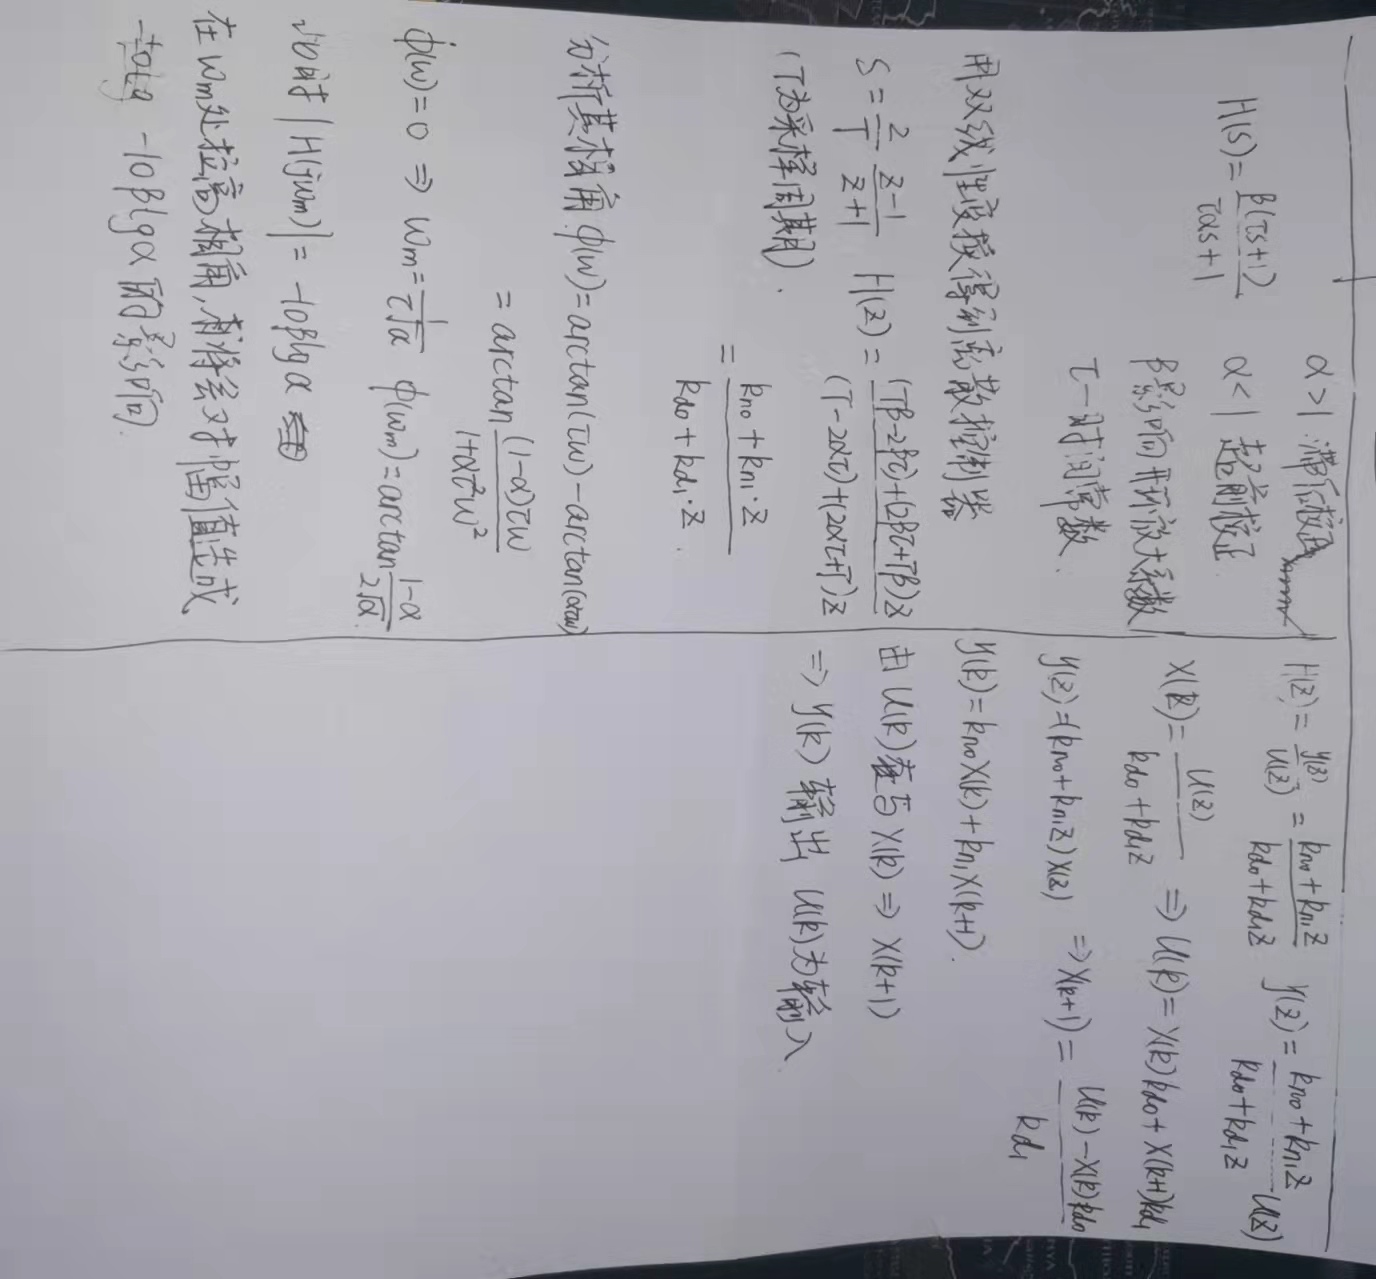 H(s)=β(τs+1)/(ταs+1)
α>1 滞后校正
α<1 超前校正
β影响开环放大系数
τ—时间常数.
用双线性变换得到离散控制器
S=2/T z-1/z+1 H(z)=((Tβ-2βτ)+(2βτ+Tβ)z)/((T-2ατ)+(2ατ+T)z)
(T为采样周期).
=(kn0+kn1·z)/(kd0+kd1·z).
分析其相角φ(ω)=arctan(τω)-arctan(ατω)
=arctan((1-α)τω)/(1+ατ²ω²)
φ̇(ω)=0 ⇒ ωm=1/(τ√α) φ(ωm)=arctan(1-α)/(2√α).
此时|H(jωm)|=-10βlgα
在ωm处拉高相角,将会对幅值造成
-10βlgα的影响.
H(z)=y(z)/U(z)=(kn0+kn1z)/(kd0+kd1z) y(z)=(kn0+kn1z)/(kd0+kd1z)U(z)
X(z)=U(z)/(kd0+kd1z) ⇒ U(k)=X(k)kd0+X(k+1)kd1
y(z)=(kn0+kn1z)X(z) ⇒X(k+1)=(U(k)-X(k)kd0)/kd1
y(k)=kn0X(k)+kn1X(k+1).
由U(k)与X(k)⇒X(k+1)
⇒y(k)输出 U(k)为输入.